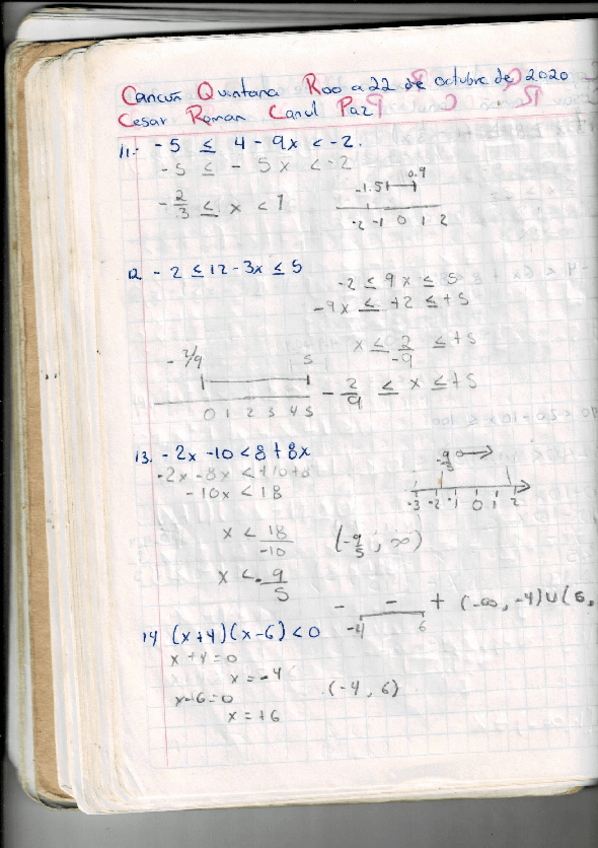 Cancún Quintana Roo a 22 de octubre de 2020
Cesar Roman Canul Paz
11.- -5 ≤ 4 - 9x < -2.
-5 ≤ - 5x < -2
-2/3 ≤ x < 1
-1.5 0.9
-2 -1 0 1 2
12. -2 ≤ 12 - 3x ≤ 5
-2 ≤ 9x ≤ 5
-9x ≤ +2 ≤ +5
x ≤ 2/-9 ≤ +5
-2/9 ≤ x ≤ +5
-2/9 5
0 1 2 3 4 5
13. -2x -10 < 8 + 8x
-2x -8x < +10+8
-10x < 18
x < 18/-10
x < -9/5
-9/5
-3 -2 -1 0 1 2
(-9/5, ∞)
14 (x+4)(x-6) < 0
x+4=0
x = -4
x-6=0
x = +6
- - +
-4 6
(-∞, -4)∪(6,
(-4, 6)